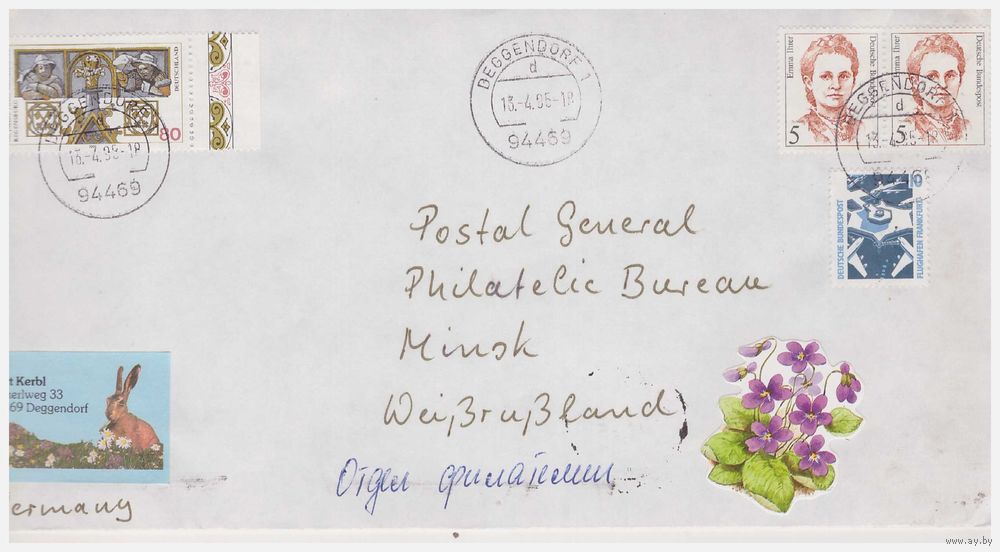 DEUTSCHLAND
80
DEGGENDORF
13.-4.95-18
94469
DEGGENDORF 1
d
13.-4.95-18
94469
Emma Ihrer
Deutsche Bundespost
5
Emma Ihrer
Deutsche Bundespost
5
DEGGENDORF
d
94469
10
DEUTSCHE BUNDESPOST
FLUGHAFEN FRANKFURT
Postal General
Philatelic Bureau
Minsk
Weißrußland
Отдел филателии
t Kerbl
erlweg 33
69 Deggendorf
ermany
www.ay.by